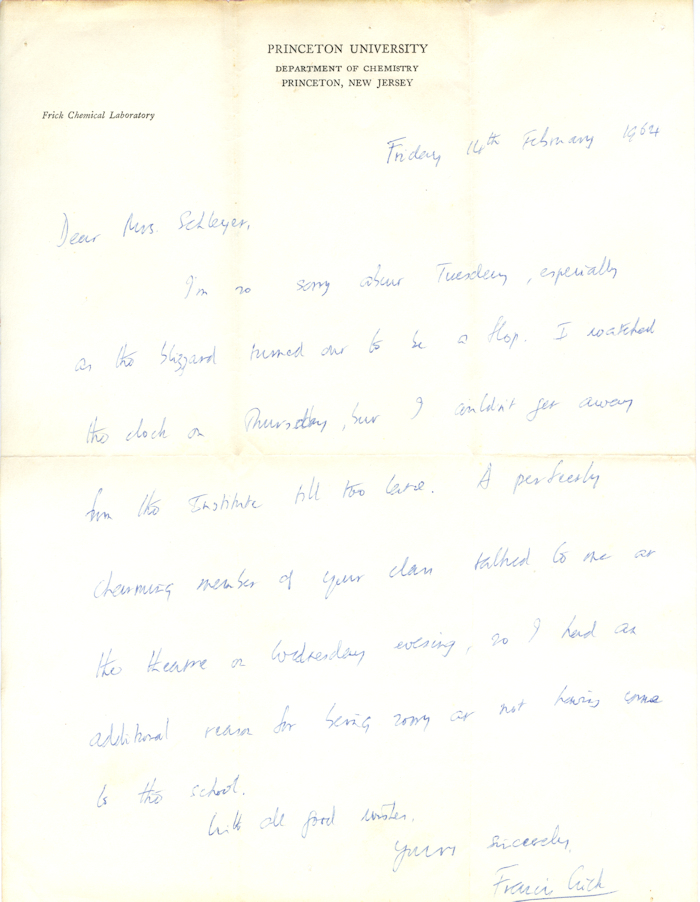 PRINCETON UNIVERSITY
DEPARTMENT OF CHEMISTRY
PRINCETON, NEW JERSEY
Frick Chemical Laboratory
Friday 14th February 1964
Dear Mrs. Schleyer,
I'm so sorry about Tuesday, especially
as the blizzard turned out to be a flop. I watched
the clock on Thursday, but I couldn't get away
from the Institute till too late. A perfectly
charming member of your class talked to me at
the theatre on Wednesday evening, so I had an
additional reason for being sorry at not having come
to the school.
With all good wishes.
Yours sincerely,
Francis Crick